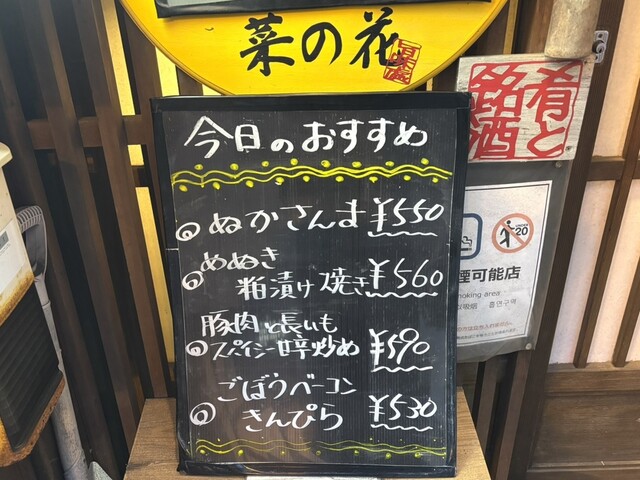 菜の花
肴と
銘酒
今日のおすすめ
ぬかさんま ¥550
めぬき
粕漬け焼き ¥560
豚肉と長いも
スパイシー甘辛炒め ¥590
ごぼうベーコン
きんぴら ¥530
20
煙可能店
smoking area
흡연구역